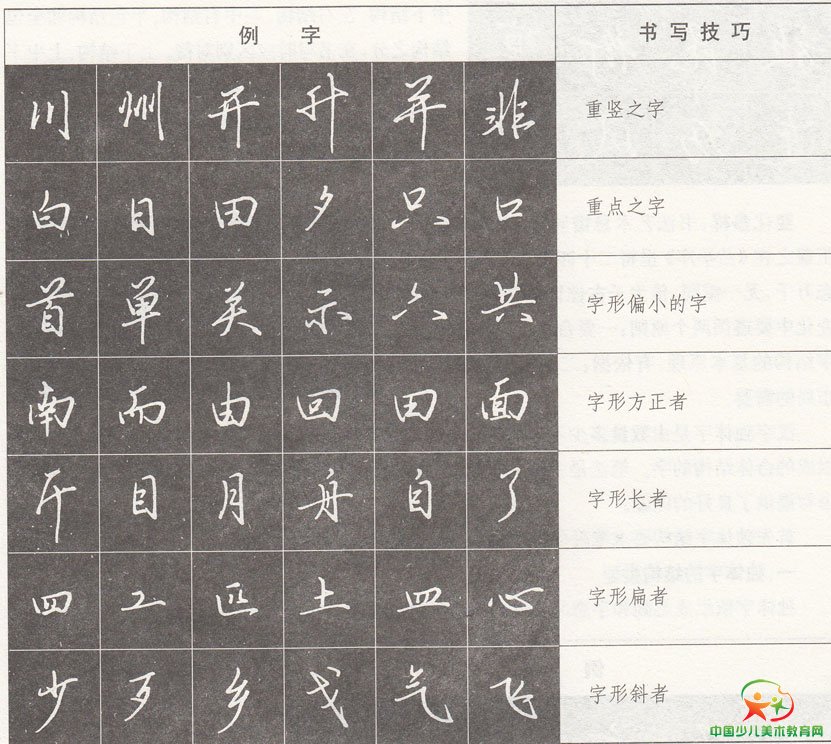 例 字 书写技巧
川 州 开 升 并 非 重竖之字
白 日 田 夕 只 口 重点之字
首 单 关 示 六 共 字形偏小的字
南 而 由 回 田 面 字形方正者
斤 目 月 舟 自 了 字形长者
四 工 匹 土 皿 心 字形扁者
少 歹 乡 戈 气 飞 字形斜者
中国少儿美术教育网